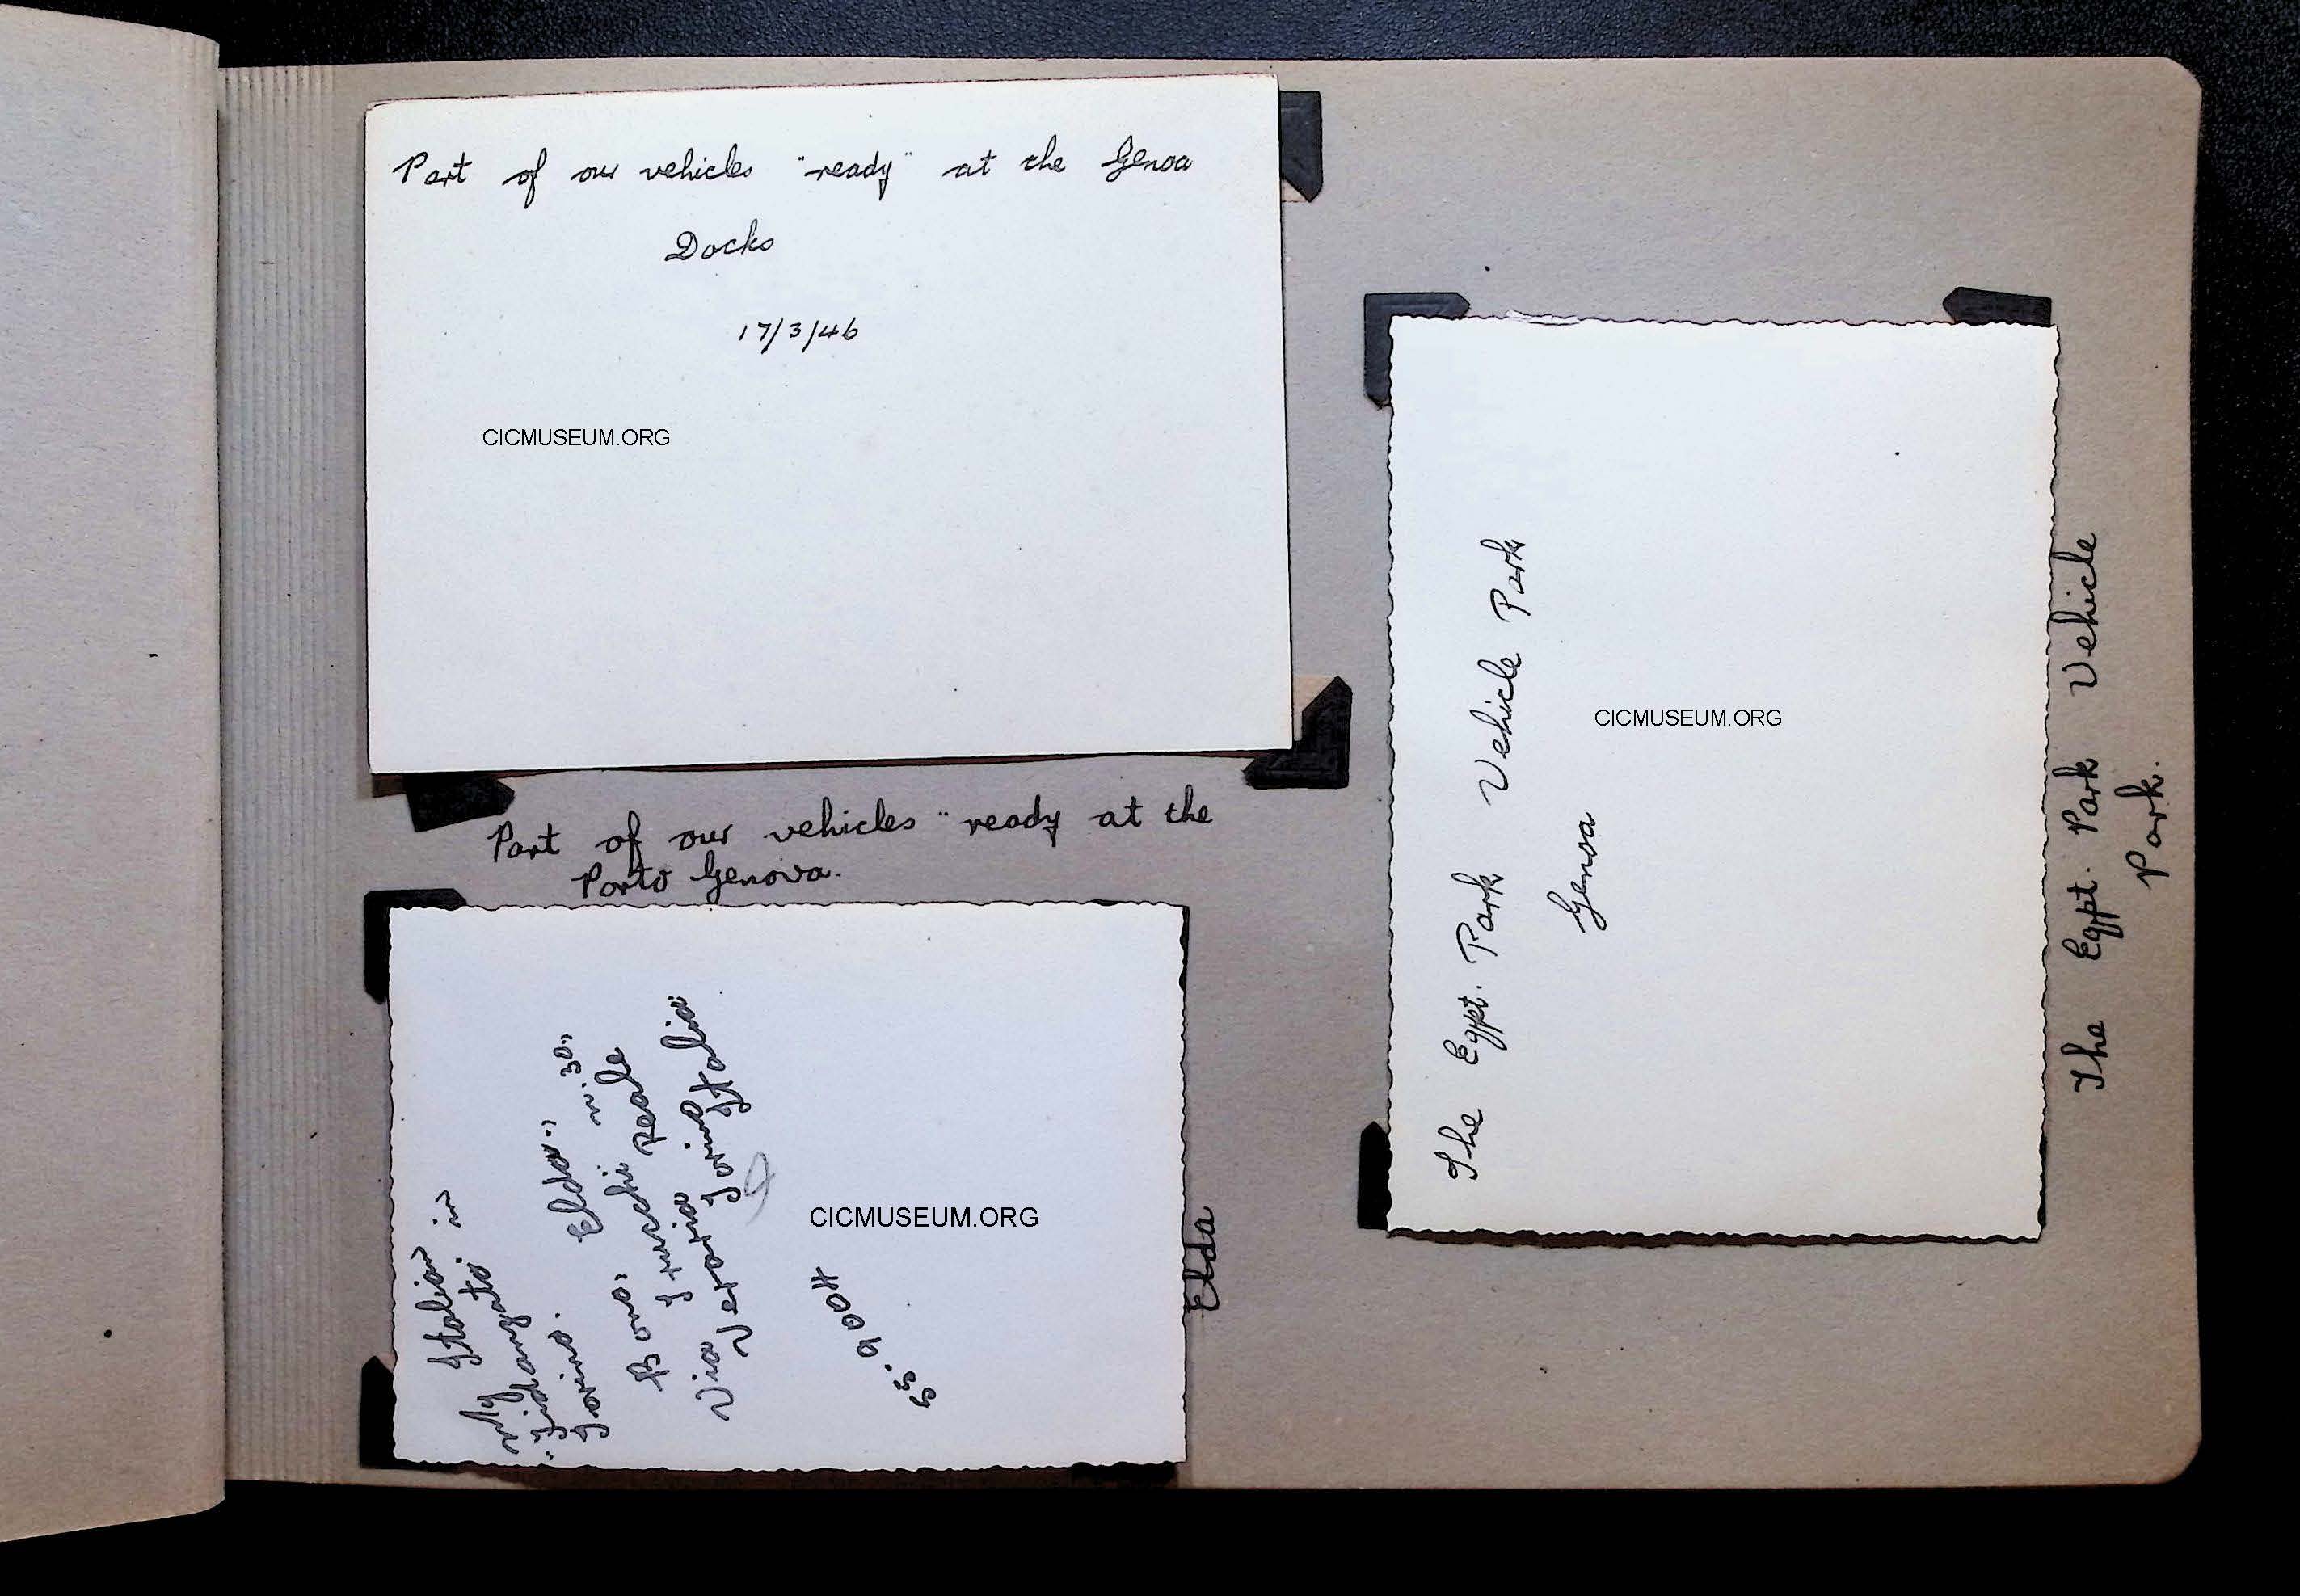 Part of our vehicles "ready" at the Genoa
Docks
17/3/46
CICMUSEUM.ORG
Part of our vehicles "ready at the
Porto Genova.
My Italian
"Fidanzata" in
Torino.
Elda.,
n. 30,
Reale
Via
Veneria Torino Italia
CICMUSEUM.ORG
Elda
The Egpt. Park Vehicle Park
Genoa
CICMUSEUM.ORG
The Egpt. Park Vehicle
Park.